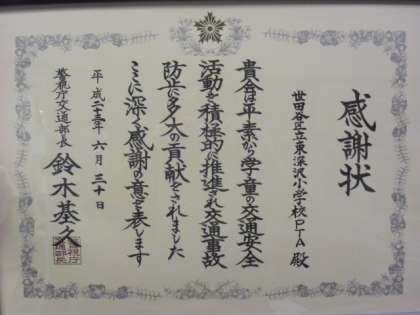 感謝状
世田谷区立東深沢小学校PTA 殿
貴会は平素から学童の交通安全
活動を積極的に推進され交通事故
防止に多大の貢献をされました
ここに深く感謝の意を表します
平成二十五年 六月 三十日
警視庁交通部長 鈴木基久